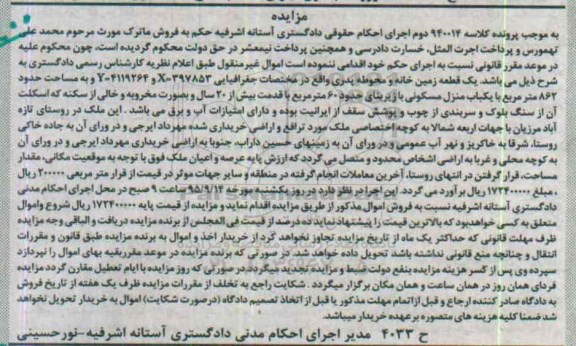 مزایده
به موجب پرونده کلاسه ۹۴۰۰۱۴ دوم اجرای احکام حقوقی دادگستری آستانه اشرفیه حکم به فروش ماترک مورث مرحوم محمد علی
تهمورس و پرداخت اجرت المثل، خسارت دادرسی و همچنین پرداخت نیمعشر در حق دولت محکوم گردیده است، چون محکوم علیه
در موعد مقرر قانونی نسبت به اجرای حکم خود اقدامی ننموده است اموال غیرمنقول طبق اعلام نظریه کارشناس رسمی دادگستری به
شرح ذیل می باشد. یک قطعه زمین خانه و محوطه پدری واقع در مختصات جغرافیایی X=۳۹۷۸۵۳ و Y=۴۱۱۹۲۶۴ و به مساحت حدود
۸۶۲ متر مربع با یکباب منزل مسکونی با زیربنای حدود ۶۰ مترمربع با قدمت بیش از ۲۰ سال و بصورت مخروبه و خالی از سکنه که اسکلت
آن از سنگ بلوک و سربندی از چوب و پوشش سقف از ایرانیت بوده و دارای امتیازات آب و برق می باشد . این ملک در روستای تازه
آباد مرزیان با جهات اربعه شمالا به کوچه اختصاصی ملک مورد ترافع و اراضی خریداری شده مهرداد ایرجی و در ورای آن به جاده خاکی
روستا، شرقا به خاکریز و نهر آب عمومی و در ورای آن به زمینهای حسین داراب، جنوبا به اراضی خریداری مهرداد ایرجی و در ورای آن
به کوچه محلی و غربا به اراضی اشخاص محدود و متصل می گردد که ارزش پایه عرصه و اعیان ملک فوق با توجه به موقعیت مکانی، مقدار
مساحت، قرار گرفتن در انتهای روستا، آخرین معاملات انجام گرفته در منطقه و سایر جهات موثر در قیمت از قرار متر مربعی ۲۰۰۰۰۰ ریال
، مبلغ ۱۷۲۴۰۰۰۰۰ ریال برآورد می گردد. این اجرا در نظر دارد در روز یکشنبه مورخه ۹۵/۹/۱۴ ساعت ۹ صبح در محل اجرای احکام مدنی
دادگستری آستانه اشرفیه نسبت به فروش اموال مذکور از طریق مزایده اقدام نماید و مزایده از قیمت پایه ۱۷۲۴۰۰۰۰۰ ریال شروع واموال
متعلق به کسی خواهدبود که بالاترین قیمت را پیشنهاد نماید ده درصد از قیمت فی المجلس از برنده مزایده دریافت و الباقی وجه مزایده
ظرف مهلت قانونی که حداکثر یک ماه از تاریخ مزایده تجاوز نخواهد کرد از خریدار اخذ و اموال به برنده مزایده طبق قانون و مقررات
انتقال و چنانچه منع قانونی نداشته باشد تحویل داده خواهد شد. در صورتی که برنده مزایده در موعد مقرربقیه بهای اموال را نپردازد
سپرده وی پس از کسر هزینه مزایده بنفع دولت ضبط و مزایده تجدید میگردد. در صورتی که روز مزایده با ایام تعطیل مقارن گردد مزایده
فردای همان روز در همان ساعت و همان مکان برگزار میگردد . شکایت راجع به تخلف از مقررات مزایده ظرف یک هفته از تاریخ فروش
به دادگاه صادر کننده ارجاع و قبل ازاتمام مهلت مذکور یا قبل از اتخاذ تصمیم دادگاه (درصورت شکایت) اموال به خریدار تحویل نخواهد
شد ضمنا کلیه هزینه های متصوره برعهده خریدار میباشد.
ح ۴۰۳۳ مدیر اجرای احکام مدنی دادگستری آستانه اشرفیه-نورحسینی